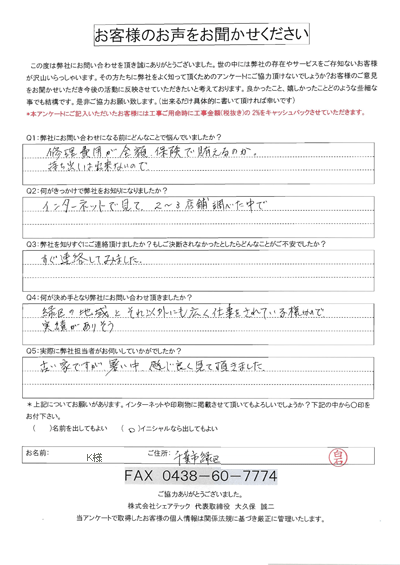 お客様のお声をお聞かせください
この度は弊社にお問い合わせを頂き誠にありがとうございました。世の中には弊社の存在やサービスをご存知ないお客様
が沢山いらっしゃいます。その方たちに弊社をよく知って頂くためのアンケートにご協力頂けないでしょうか？お客様のご意見
をお聞かせいただき今後の活動に反映させていただきたいと考えております。良かったこと、嬉しかったことどのような些細な
事でも結構です。是非ご協力お願い致します。（出来るだけ具体的に書いて頂ければ幸いです）
*本アンケートにご記入いただいたお客様には工事ご用命時に工事金額（税抜き）の2%をキャッシュバックさせていただきます。
Q1：弊社にお問い合わせになる前にどんなことで悩んでいましたか？
修理費用が全額保険で賄えるのか。
持ち出しは出来ないので
Q2：何がきっかけで弊社をお知りになりましたか？
インターネットで見て 2〜3店舗調べた中で
Q3：弊社を知りすぐにご連絡頂けましたか？もしご決断されなかったとしたらどんなことがご不安でしたか？
すぐ連絡してみました。
Q4：何が決め手となり弊社にお問い合わせ頂きましたか？
緑区の地域とそれ以外にも広く仕事をされている様なので
実績がありそう
Q5：実際に弊社担当者がお伺いしていかがでしたか？
古い家ですが暑い中、感じ良く見て頂きました。
*上記についてお願いがあります。インターネットや印刷物に掲載させて頂いてもよろしいでしょうか？下記の中から〇印を
お付下さい。
（　）名前を出してもよい　（〇）イニシャルなら出してもよい
お名前： K様 ご住所： 千葉市緑区 白石
FAX 0438-60-7774
ご協力ありがとうございました。
株式会社シェアテック 代表取締役 大久保 誠二
当アンケートで取得したお客様の個人情報は関係法規に基づき厳正に管理いたします。